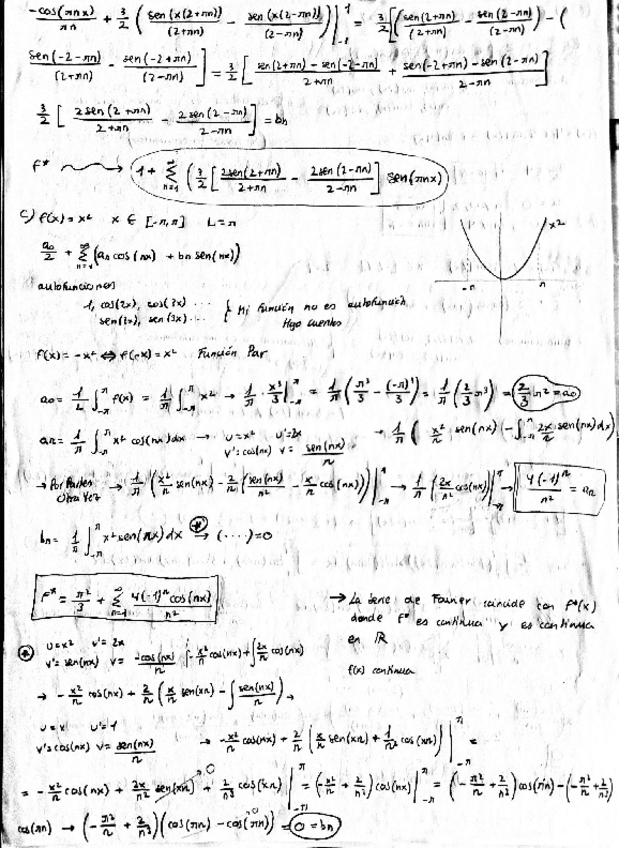 -cos(πnx)/πn + 3/2 (sen(x(2+πn))/(2+πn) - sen(x(2-πn))/(2-πn)) |₋₁¹ = 3/2 [(sen(2+πn)/(2+πn) - sen(2-πn)/(2-πn)) - (
sen(-2-πn)/(2+πn) - sen(-2+πn)/(2-πn)] = 3/2 [sen(2+πn) - sen(-2-πn)/2+πn + sen(-2+πn) - sen(2-πn)/2-πn]
3/2 [2sen(2+πn)/2+πn - 2sen(2-πn)/2-πn] = bn
F* → 1 + ∑ₙ₌₁^∞ (3/2 [2sen(2+πn)/2+πn - 2sen(2-πn)/2-πn] sen(πnx)
c) f(x) = x² x ∈ [-π, π] L = π
x²
-π π
a₀/2 + ∑ₙ₌₁^∞ (aₙ cos(nx) + bn sen(nx))
autofunciones
1, cos(2x), cos(3x) ...
sen(2x), sen(3x) ... } Mi función no es autofunción
Hago cuentas
f(x) = -x² ⇔ f(-x) = x² Función Par
a₀ = 1/L ∫₋π^π f(x) = 1/π ∫₋π^π x² → 1/π · x³/3 |₋π^π = 1/π (π³/3 - (-π)³/3) = 1/π (2/3 π³) = 2/3 π² = a₀
aₙ = 1/π ∫₋π^π x² cos(nx) dx → u = x² u' = 2x → 1/π (x²/n sen(nx) - ∫₋π^π 2x/n sen(nx) dx)
v' = cos(nx) v = sen(nx)/n
→ Por Partes Otra vez → 1/π (x²/n sen(nx) - 2/n (sen(nx)/n² - x/n cos(nx))) |₋π^π → 1/π (2x/n² cos(nx)) |₋π^π → 4(-1)ⁿ/n² = aₙ
bn = 1/π ∫₋π^π x² sen(nx) dx →⊛ (....) = 0
F* = π²/3 + ∑ₙ₌₁^∞ 4(-1)ⁿ cos(nx)/n²
→ La serie de Fourier coincide con f*(x)
donde f* es continua y es continua
en ℝ
f(x) continua
⊛ u = x² u' = 2x
v' = sen(nx) v = -cos(nx)/n [-x²/n cos(nx) + ∫2x/n cos(nx)
→ -x²/n cos(nx) + 2/n (x/n sen(nx) - ∫ sen(nx)/n) →
u = x u' = 1
v' = cos(nx) v = sen(nx)/n → -x²/n cos(nx) + 2/n [x/n sen(nx) + 1/n² cos(nx)] |₋π^π =
= -x²/n cos(nx) + 2x/n² sen(nx) → 0 + 2/n³ cos(nx) |₋π^π = (-x²/n + 2/n³) cos(nx) |₋π^π = (-π²/n + 2/n³) cos(πn) - (-π²/n + 2/n³)
cos(πn) → (-π²/n + 2/n³) (cos(πn) - cos(πn)) = 0 = bn